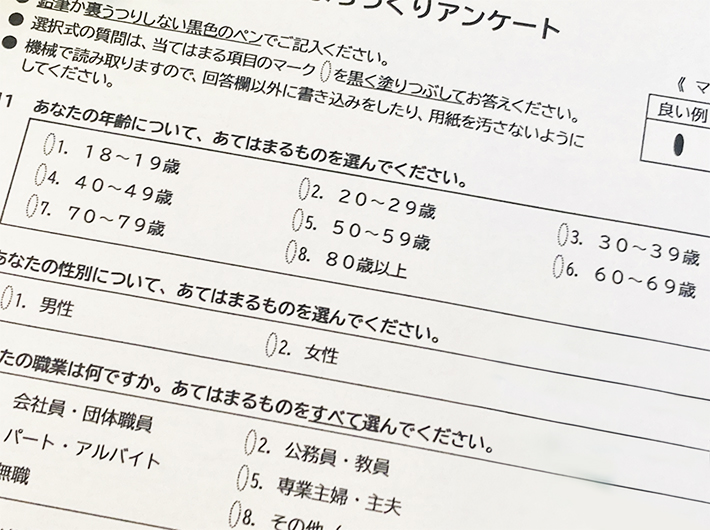 づくりアンケート
鉛筆か裏うつりしない黒色のペンでご記入ください。
● 選択式の質問は、当てはまる項目のマーク を黒く塗りつぶしてお答えください。
● 機械で読み取りますので、回答欄以外に書き込みをしたり、用紙を汚さないように
してください。
《 マ
良い例
11 あなたの年齢について、あてはまるものを選んでください。
1. 18～19歳 2. 20～29歳 3. 30～39歳
4. 40～49歳 5. 50～59歳 6. 60～69歳
7. 70～79歳 8. 80歳以上
あなたの性別について、あてはまるものを選んでください。
1. 男性 2. 女性
たの職業は何ですか。あてはまるものをすべて選んでください。
会社員・団体職員 2. 公務員・教員
パート・アルバイト 5. 専業主婦・主夫
無職 8. その他（